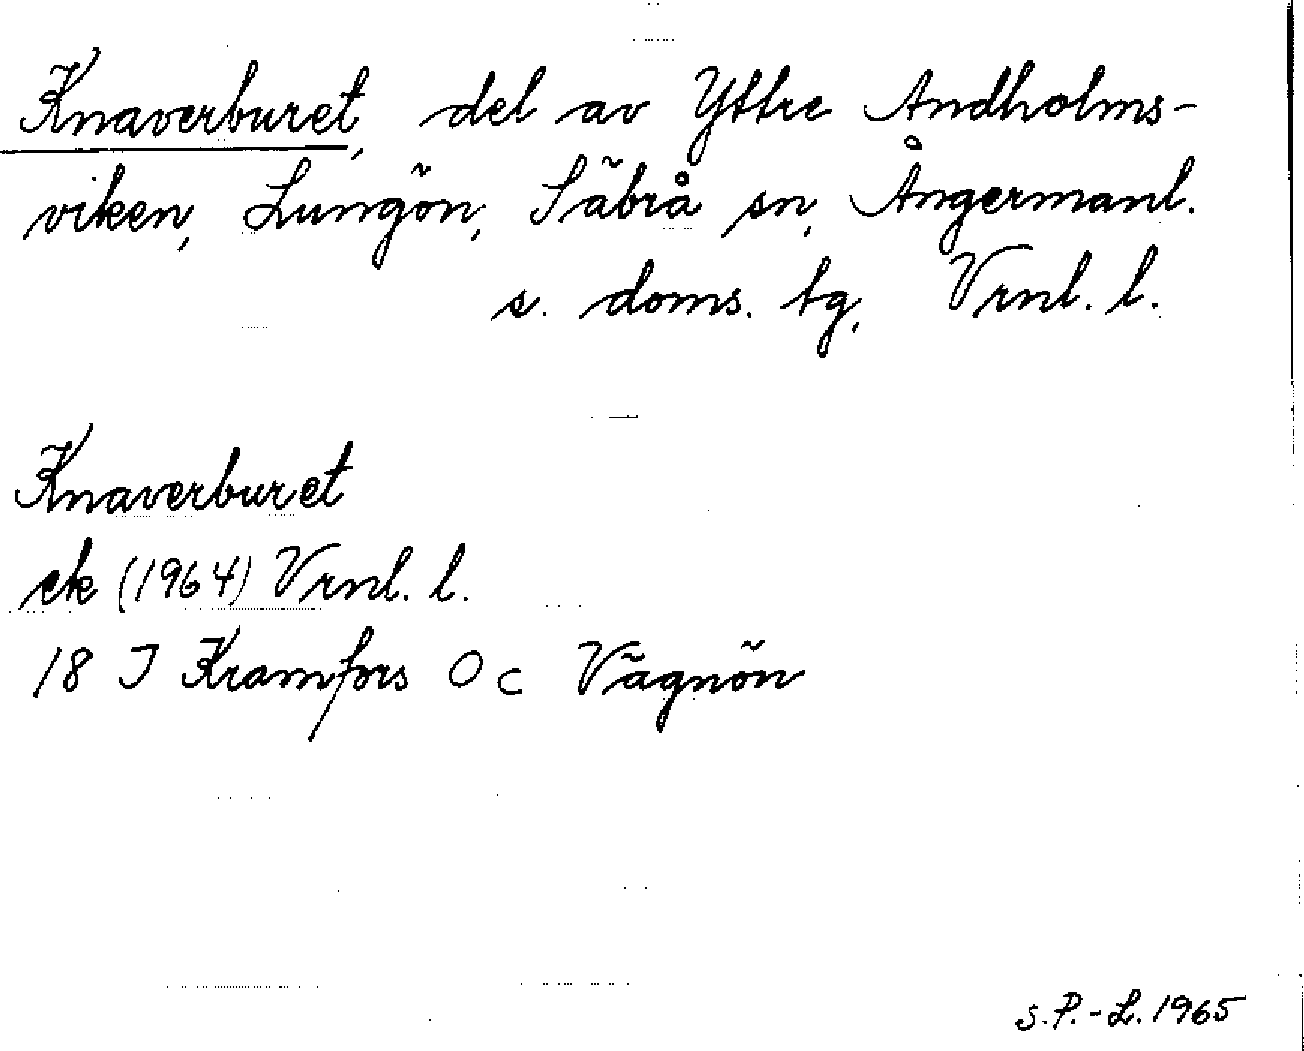 Knaverburet, del av Yttre Andholms-
viken, Lungön, Säbrå sn, Ångermanl.
s. doms. tg, Vrnl. l.
Knaverburet
ek (1964) Vrnl. l.
18 J Kramfors O c Vägnön
S.P.-L. 1965